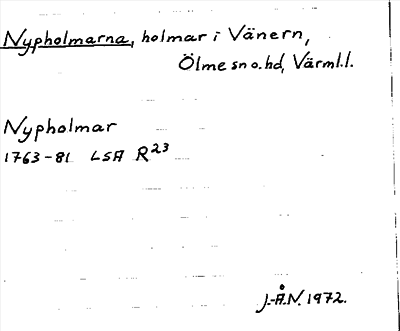 Nypholmarna, holmar i Vänern,
Ölme sn o. hd, Värml. l.
Nypholmar
1763-81 LSA R23
J.-Å.N. 1972.